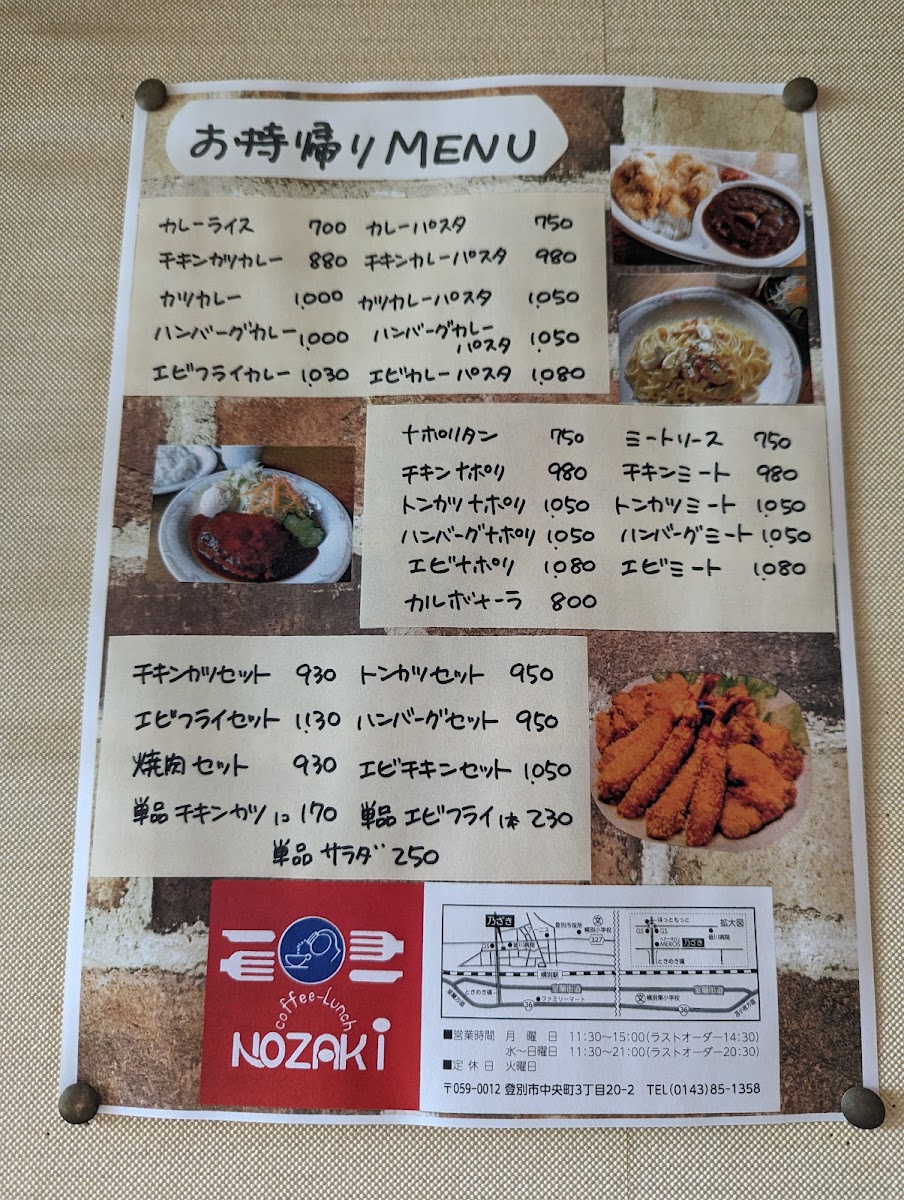 お持帰りMENU
カレーライス 700 カレーパスタ 750
チキンカツカレー 880 チキンカレーパスタ 980
カツカレー 1,000 カツカレーパスタ 1,050
ハンバーグカレー 1,000 ハンバーグカレー
パスタ 1,050
エビフライカレー 1,030 エビカレーパスタ 1,080
ナポリタン 750 ミートソース 750
チキンナポリ 980 チキンミート 980
トンカツナポリ 1,050 トンカツミート 1,050
ハンバーグナポリ 1,050 ハンバーグミート 1,050
エビナポリ 1,080 エビミート 1,080
カルボナーラ 800
チキンカツセット 930 トンカツセット 950
エビフライセット 1,130 ハンバーグセット 950
焼肉セット 930 エビチキンセット 1,050
単品チキンカツ1コ 170 単品エビフライ1本 230
単品サラダ 250
coffee-Lunch
NOZAKi
乃ざき
登別市役所
幌別小学校
327
GS
皆川病院
幌別駅
ときめき橋
室蘭街道
室蘭方面
36
ファミリーマート
拡大図
ほっともっと
GS
GS
皆川病院
MEROS
乃ざき
ときめき橋
室蘭街道
幌別東小学校
36
苫小牧方面
■営業時間 月曜日 11:30〜15:00(ラストオーダー14:30)
水〜日曜日 11:30〜21:00(ラストオーダー20:30)
■定休日 火曜日
〒059-0012 登別市中央町3丁目20-2 TEL(0143)85-1358